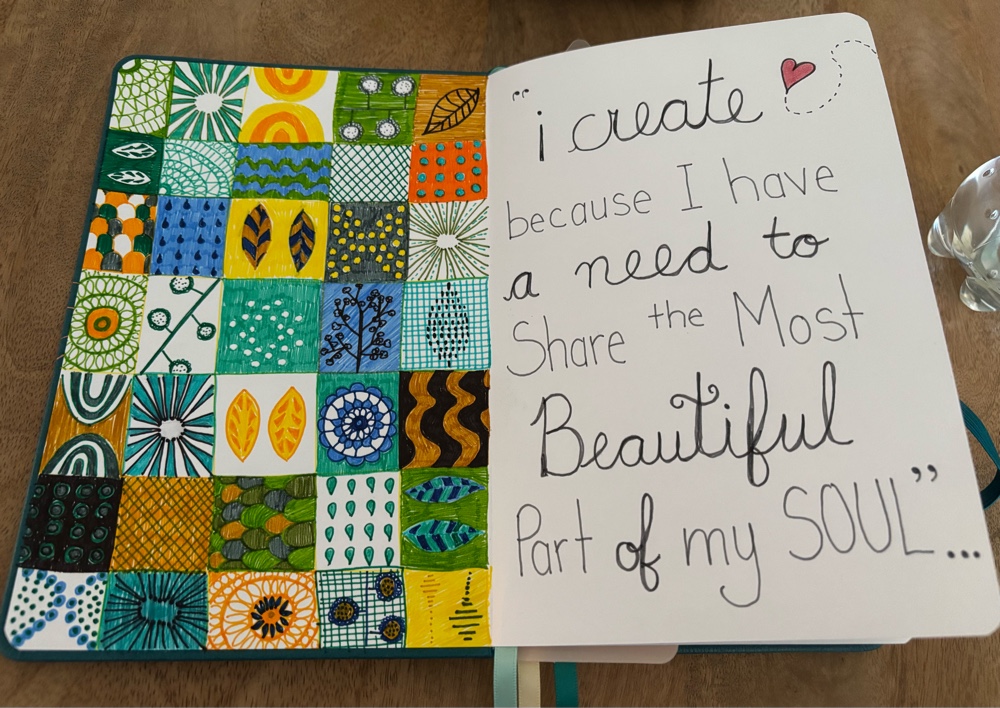 "i create
because I have
a need to
Share the Most
Beautiful
Part of my SOUL"...